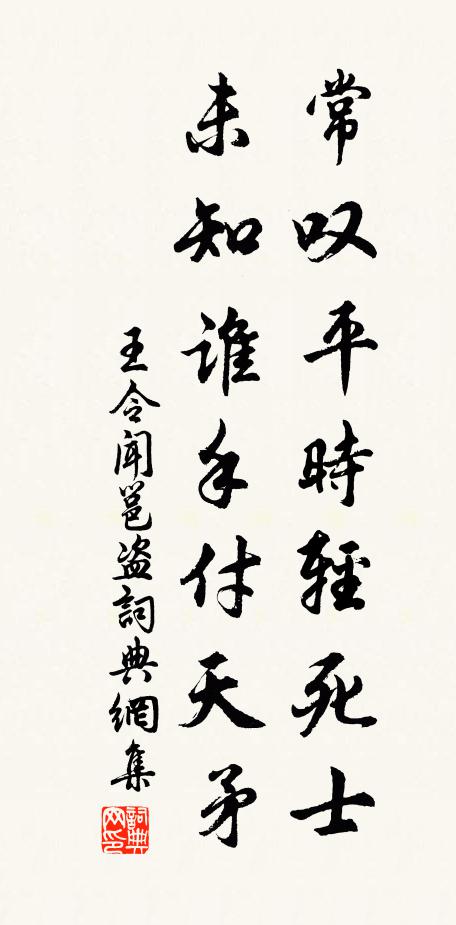 常叹平時輕死士
未知誰手付天矛
王令闻邕盗詞典網集
詞典网印